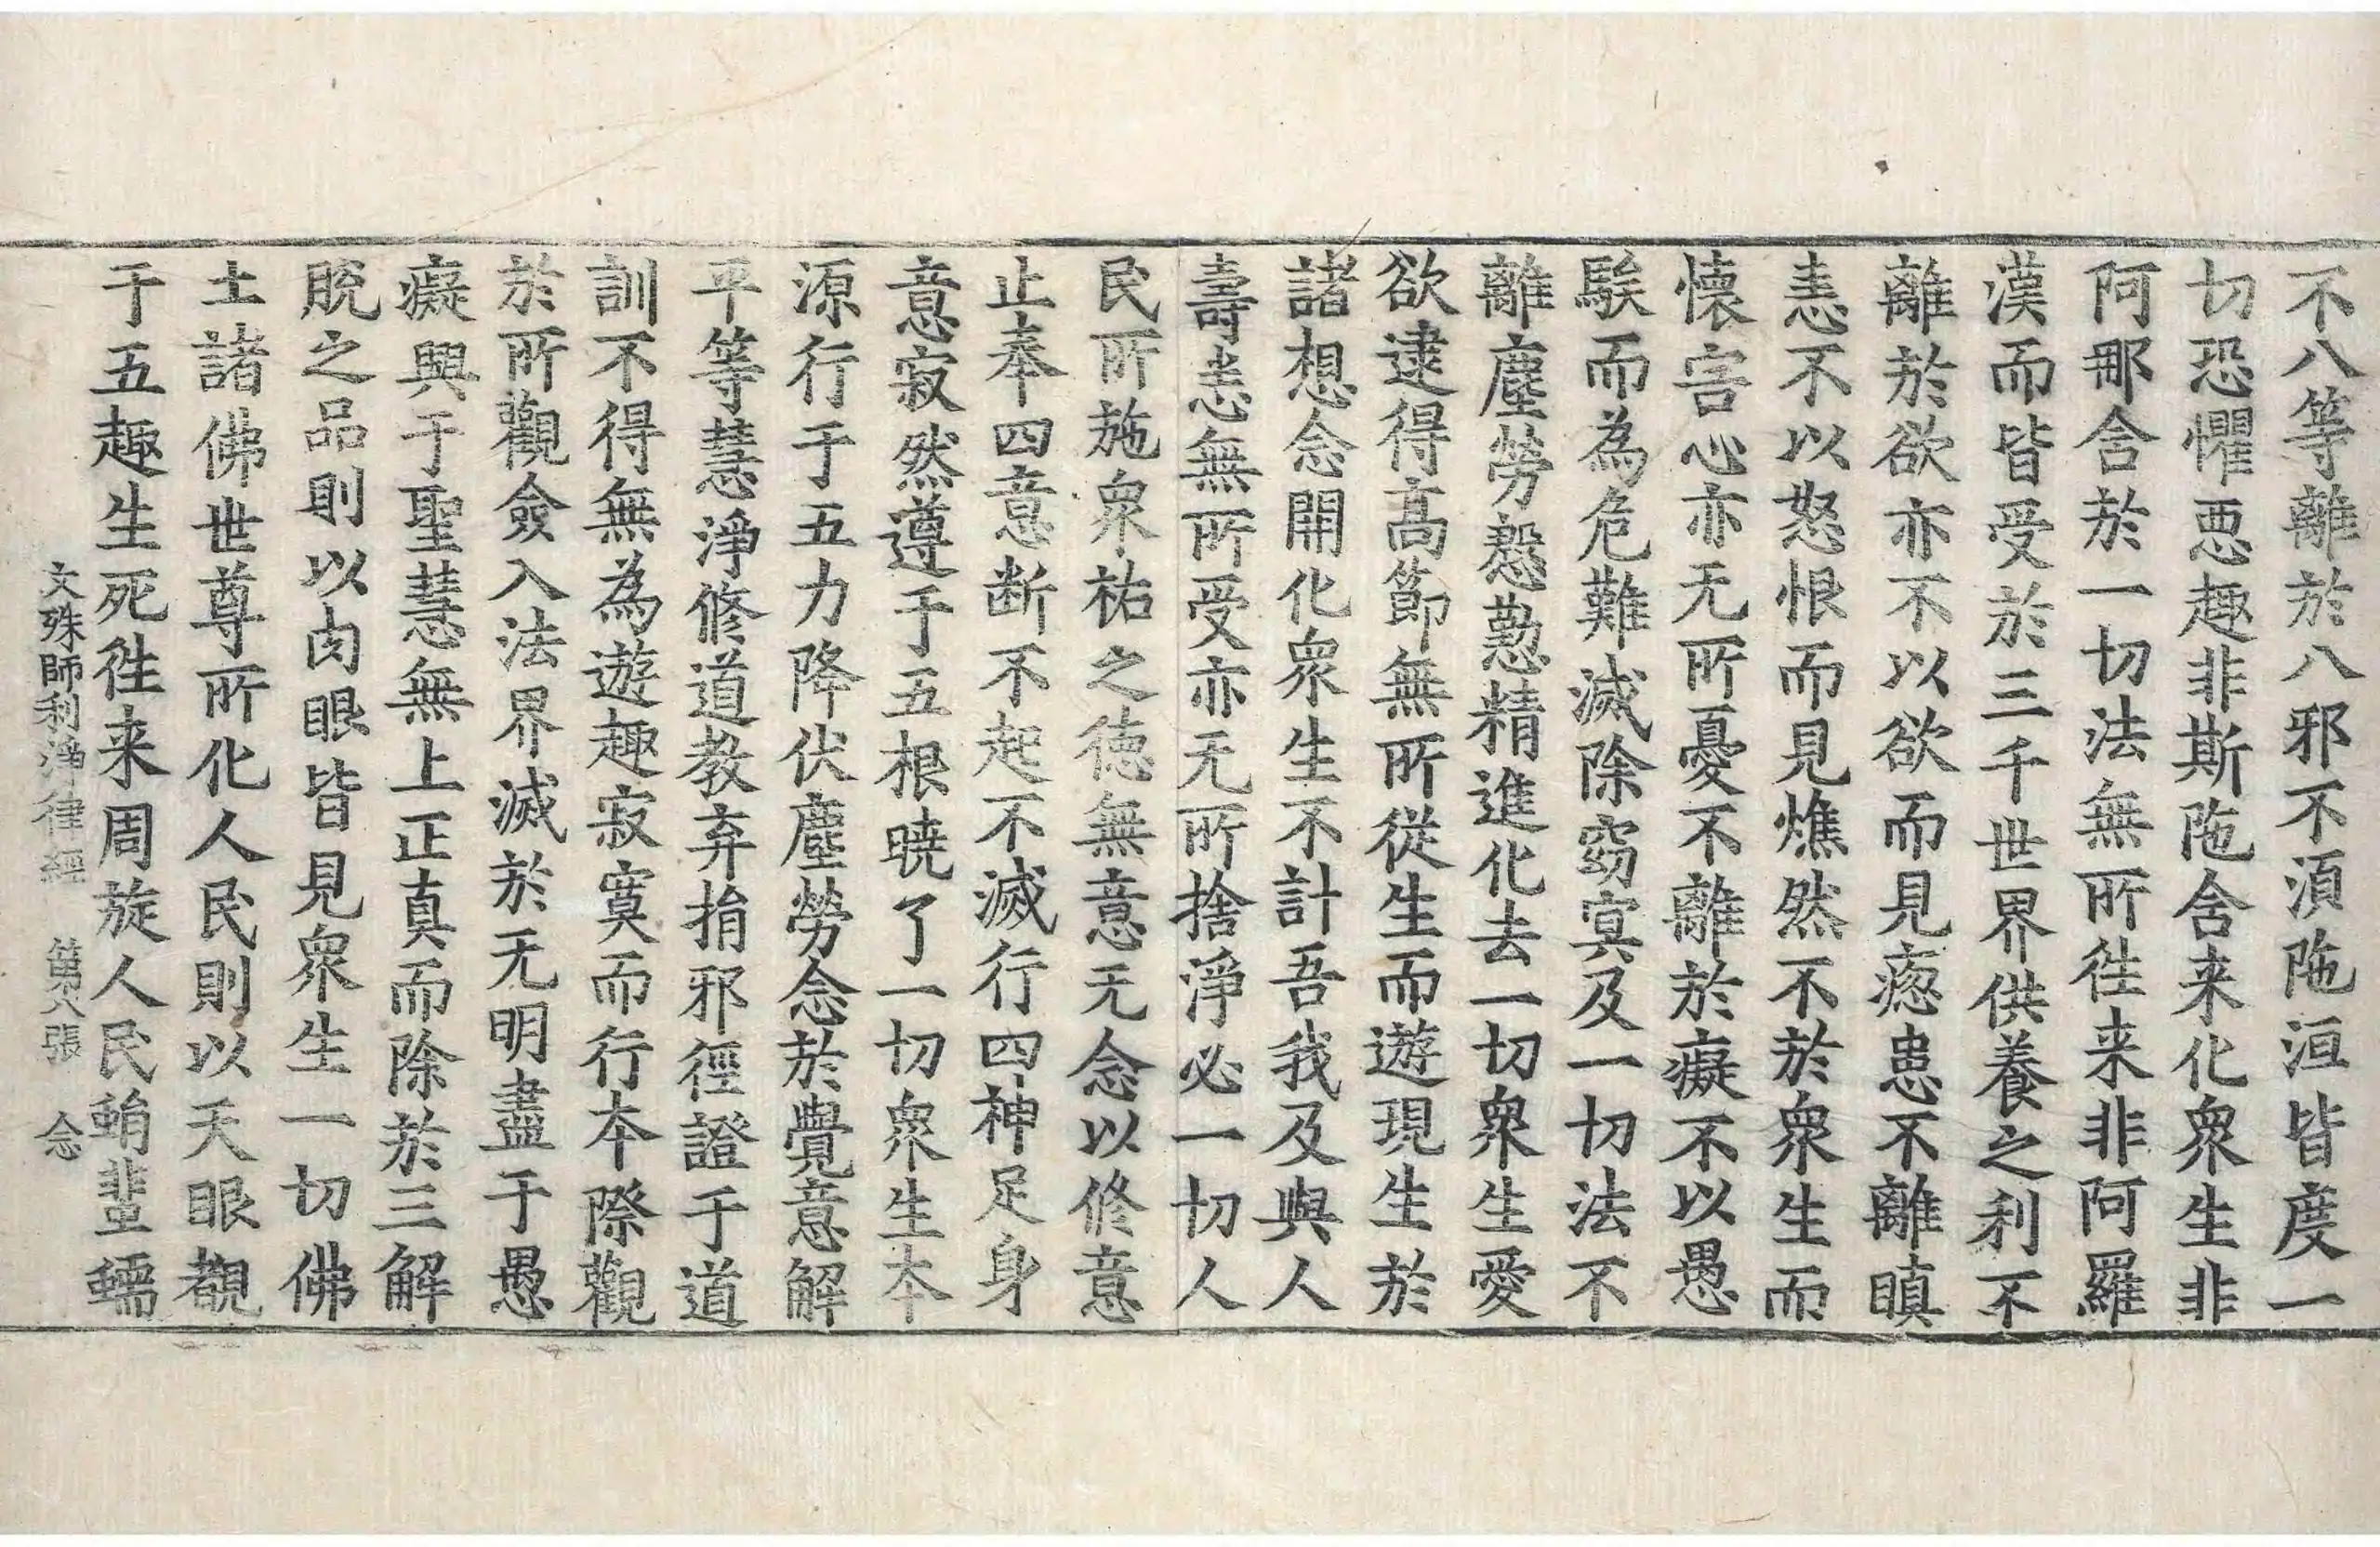 不八等離於八邪不須陁洹皆度一
切恐懼惡趣非斯陁含来化衆生非
阿那含於一切法無所往来非阿羅
漢而皆受於三千世界供養之利不
離於欲亦不以欲而見㥽患不離瞋
恚不以怒恨而見燋然不於衆生而
懷害心亦无所憂不離於癡不以愚
騃而為危難滅除窈冥及一切法不
離塵勞慇懃精進化去一切衆生愛
欲逮得高節無所從生而遊現生於
諸想念開化衆生不計吾我及與人
壽恚無所受亦无所捨淨必一切人
民所施衆祐之徳無意无念以修意
止奉四意断不起不滅行四神足身
意寂然遵于五根曉了一切衆生本
源行于五力降伏塵勞念於覺意解
平等慧淨修道教弃捐邪徑證于道
訓不得無為遊趣寂寞而行本際觀
於所觀僉入法界滅於无明盡于愚
癡興于聖慧無上正真而除於三解
脫之品則以肉眼皆見衆生一切佛
土諸佛世尊所化人民則以天眼覩
于五趣生死往来周旋人民蜎蜚蠕
文殊師利淨律經 第八張 念